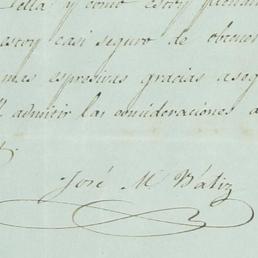 ella: y como estoy
estoy casi seguro de obtener
mas espresivas gracias
admitir las consideraciones
José M Bátiz